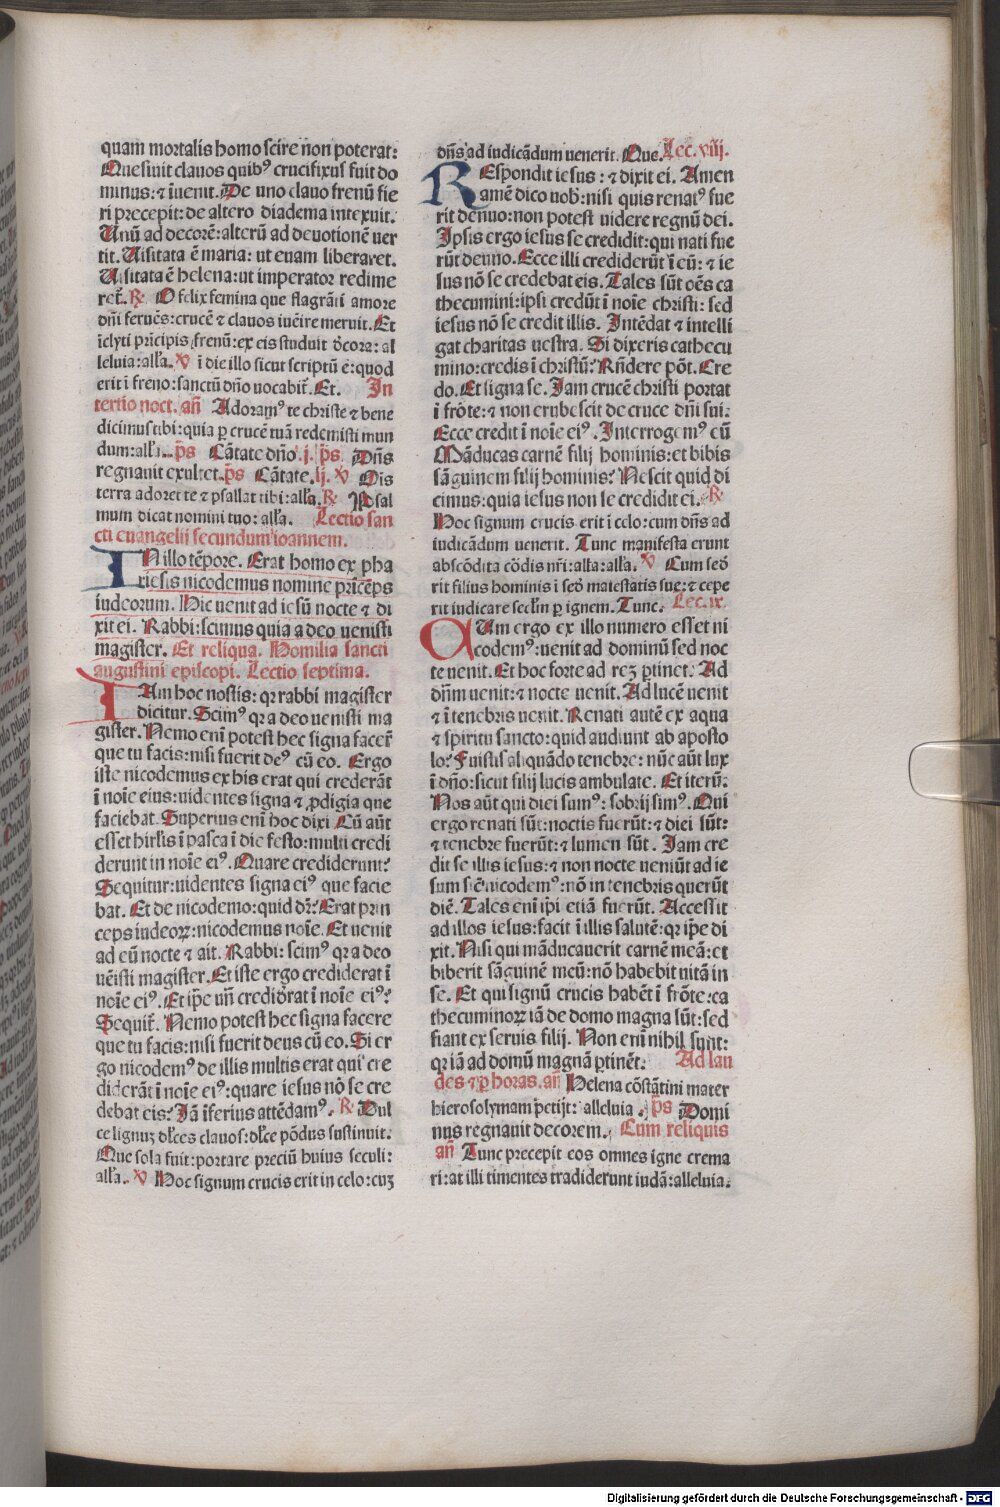 quam mortalis homo scire non poterat:
Quesiuit clauos quibꝰ crucifixus fuit do
minus: ⁊ īuenit. De uno clauo frenū fie
ri precepit: de altero diadema intexuit.
Unū ad decorē: alterū ad deuotionē uer
tit. Uisitata ē maria: ut euam liberaret.
Uisitata ē helena: ut imperator redime
ret̄. ℟ O felix femina que flagrāti amore
dn̄i feruēs: crucē ⁊ clauos iuēire meruit. Et
īclyti prīcipis frenū: ex eis studuit d̄cora: al
leluia: all'a. v̄ ī die illo sicut scriptū ē: quod
erit ī freno: sanctū dn̄o uocabit̄. Et. In
tertio noct. an̄ Adoramꝰ te christe ⁊ bene
dicimus tibi: quia ꝑ crucē tuā redemisti mun
dum: all'a. p̄s Cātate dn̄o. j. p̄s Dn̄s
regnauit exultet. p̄s Cātate. ij. v̄ Oīs
terra adoret te ⁊ psallat tibi: all'a. ℟ Psal
mum dicat nomini tuo: all'a. Lectio san
cti euangelii secundum ioannem.
IN illo tēpore. Erat homo ex pha
riseis nicodemus nomine prīceps
iudeorum. Hic uenit ad iesū nocte ⁊ di
xit ei. Rabbi: scimus quia a deo uenisti
magister. Et reliqua. Homilia sancti
augustini episcopi. Lectio septima.
IAm hoc nostis: qꝛ rabbi magister
dicitur. Scimꝰ qꝛ a deo uenisti ma
gister. Nemo enī potest hec signa facer̄
que tu facis: nisi fuerit deꝰ cū eo. Ergo
iste nicodemus ex his erat qui crederāt
ī noīe eius: uidentes signa ⁊ ꝓdigia que
faciebat. Superius enī hoc dixi Cū aūt
esset hirlis ī pasca ī die festo: multi credi
derunt in noīe eiꝰ. Quare crediderunt?
Sequitur: uidentes signa eiꝰ que facie
bat. Et de nicodemo: quid dr̄? Erat prin
ceps iudeoꝝ: nicodemus noīe. Et uenit
ad eū nocte ⁊ ait. Rabbi: scimꝰ qꝛ a deo
uēisti magister. Et iste ergo crediderat ī
noīe eiꝰ. Et ip̄e un̄ credid̄rat ī noīe eiꝰ?
Sequit̄. Nemo potest hec signa facere
que tu facis: nisi fuerit deus cū eo. Si er
go nicodemꝰ de illis multis erat qui cre
diderāt ī noīe eiꝰ: quare iesus nō se cre
debat eis? Iā īferius attēdamꝰ. ℟ Dul
ce lignuꝫ dl'ces clauos: dl'ce pōdus sustinuit.
Que sola fuit: portare preciū huius seculi:
all'a. v̄ Hoc signum crucis erit in celo: cuꝫ
dn̄s ad iudicādum uenerit. Que. Lec. viij.
REspondit iesus: ⁊ dixit ei. Amen
amē dico uob: nisi quis renatꝰ fue
rit denuo: non potest uidere regnū dei.
Ipsis ergo iesus se credidit: qui nati fue
rūt denuo. Ecce illi crediderūt ī eū: ⁊ ie
sus nō se credebat eis. Tales sūt oēs ca
thecumini: ipsi credūt ī noīe christi: sed
iesus nō se credit illis. Intēdat ⁊ intelli
gat charitas uestra. Si dixeris cathecu
mino: credis ī christū? Rn̄dere pōt. Cre
do. Et signa se. Iam crucē christi portat
ī frōte: ⁊ non erubescit de cruce dn̄i sui.
Ecce credit ī noīe eiꝰ. Interrogemꝰ eū
Māducas carnē filij hominis: et bibis
sāguinem filij hominis? Nescit quid di
cimus: quia iesus non se credidit ei. ℟
Hoc signum crucis erit ī celo: cum dn̄s ad
iudicādum uenerit. Tunc manifesta erunt
abscōdita cōdis nr̄i: alta: all'a. v̄ Cum sed̄
rit filius hominis ī sed̄ maiestatis sue: ⁊ cepe
rit iudicare secl'm ꝑ ignem. Tunc. Lec. ix.
CUm ergo ex illo numero esset ni
codemꝰ: uenit ad dominū sed noc
te uenit. Et hoc forte ad reꝫ ꝑtinet. Ad
dn̄m uenit: ⁊ nocte uenit. Ad lucē uenit
⁊ ī tenebris uenit. Renati autē ex aqua
⁊ spiritu sancto: quid audiunt ab aposto
lo? Fuistis aliquādo tenebre: nūc aūt lux
ī dn̄o: sicut filij lucis ambulate. Et iterū?
Nos aūt qui diei sumꝰ: sobrij simꝰ. Qui
ergo renati sūt: noctis fuerūt: ⁊ diei sūt:
⁊ tenebre fuerūt: ⁊ lumen sūt. Iam cre
dit se illis iesus: ⁊ non nocte ueniūt ad ie
sum sic̄ nicodemꝰ: nō in tenebris querūt
diē. Tales enī ip̄i etiā fuerūt. Accessit
ad illos iesus: facit ī illis salutē: qꝛ ip̄e di
xit. Nisi qui māducauerit carnē meā: et
biberit sāguinē meū: nō habebit uitā in
se. Et qui signū crucis habēt ī frōte: ca
thecuminoꝝ iā de domo magna sūt: sed
fiant ex seruis filij. Non enī nihil sunt:
qꝛ iā ad domū magnā ꝑtinēt. Ad lau
des ⁊ ꝑ horas. an̄ Helena cōstātini mater
hierosolymam petijt: alleluia. p̄s Domi
nus regnauit decorem. Cum reliquis
an̄ Tunc precepit eos omnes igne crema
ri: at illi timentes tradiderunt iudā: alleluia.
Digitalisierung gefördert durch die Deutsche Forschungsgemeinschaft - DFG